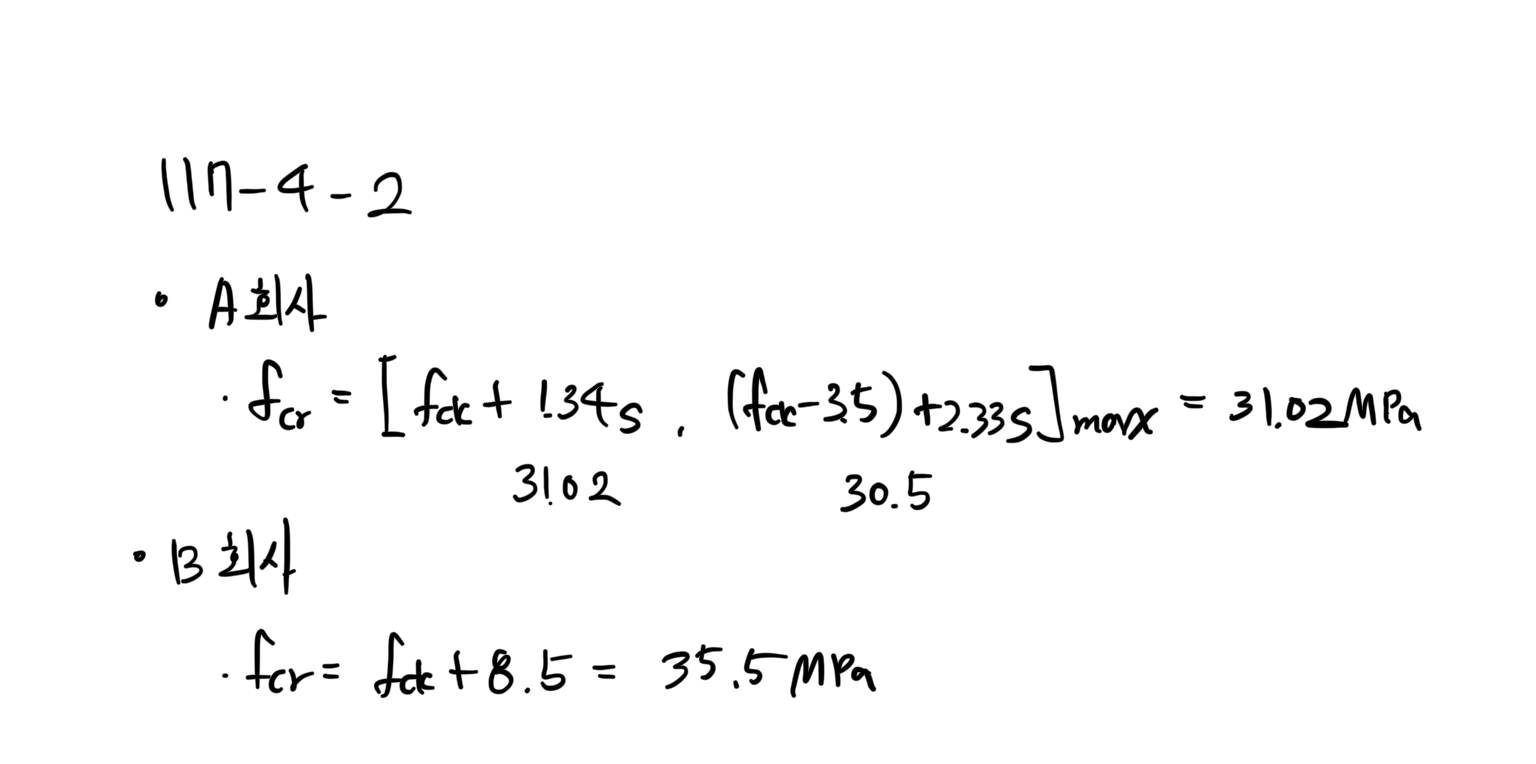 117-4-2
• A회사
· fcr = [fck + 1.34s , (fck-3.5)+2.33s]max = 31.02MPa
31.02 30.5
• B회사
· fcr = fck + 8.5 = 35.5MPa